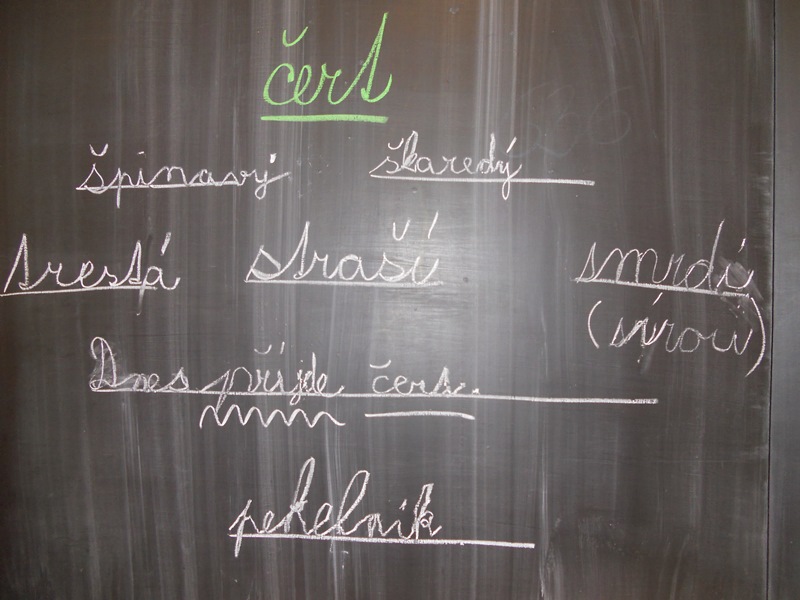 čert
špinavý škaredý
trestá straší smrdí
(sírou)
Dnes přijde čert.
pekelník